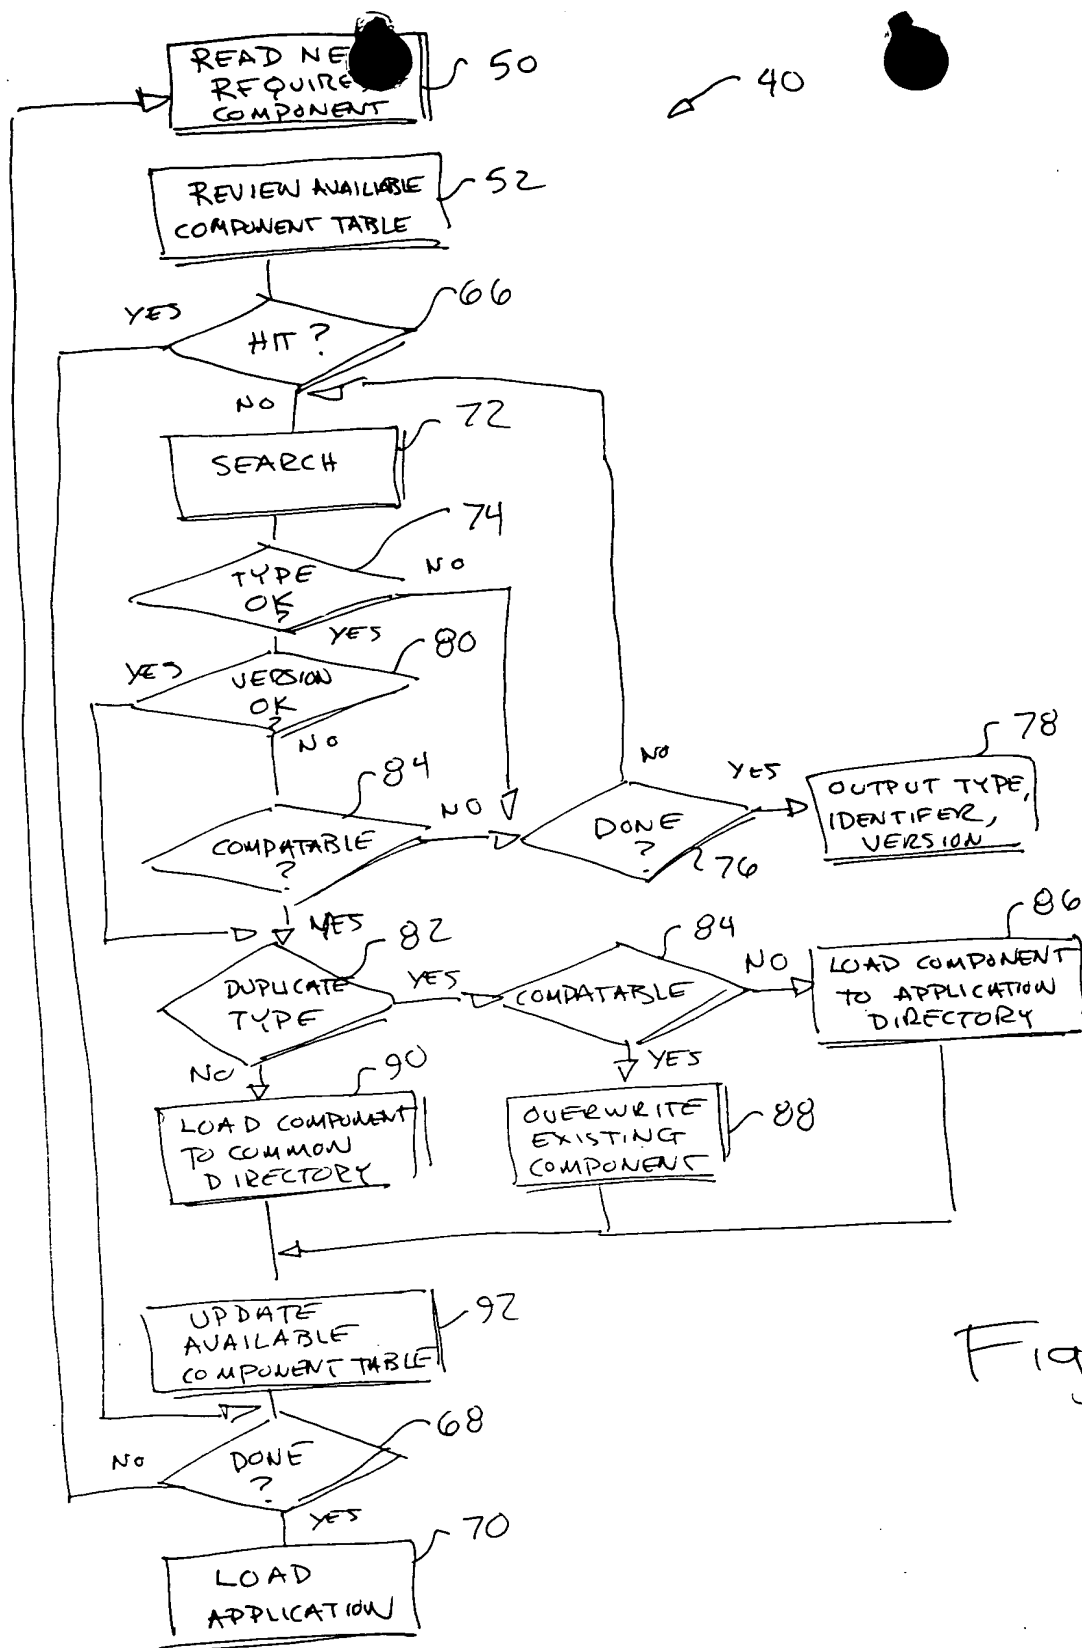 READ NE
REQUIRE
COMPONENT
50
40
REVIEW AVAILIABLE
COMPONENT TABLE
52
YES
HIT ?
66
NO
SEARCH
72
TYPE
OK
?
74
NO
YES
YES
VERSION
OK
?
80
NO
COMPATABLE
?
84
NO
DONE
?
76
NO
YES
OUTPUT TYPE,
IDENTIFER,
VERSION
78
YES
DUPLICATE
TYPE
82
YES
COMPATABLE
84
NO
LOAD COMPONENT
TO APPLICATION
DIRECTORY
86
NO
YES
LOAD COMPONENT
TO COMMON
DIRECTORY
90
OVERWRITE
EXISTING
COMPONENT
88
UPDATE
AVAILABLE
COMPONENT TABLE
92
Fig
NO
DONE
?
68
YES
LOAD
APPLICATION
70